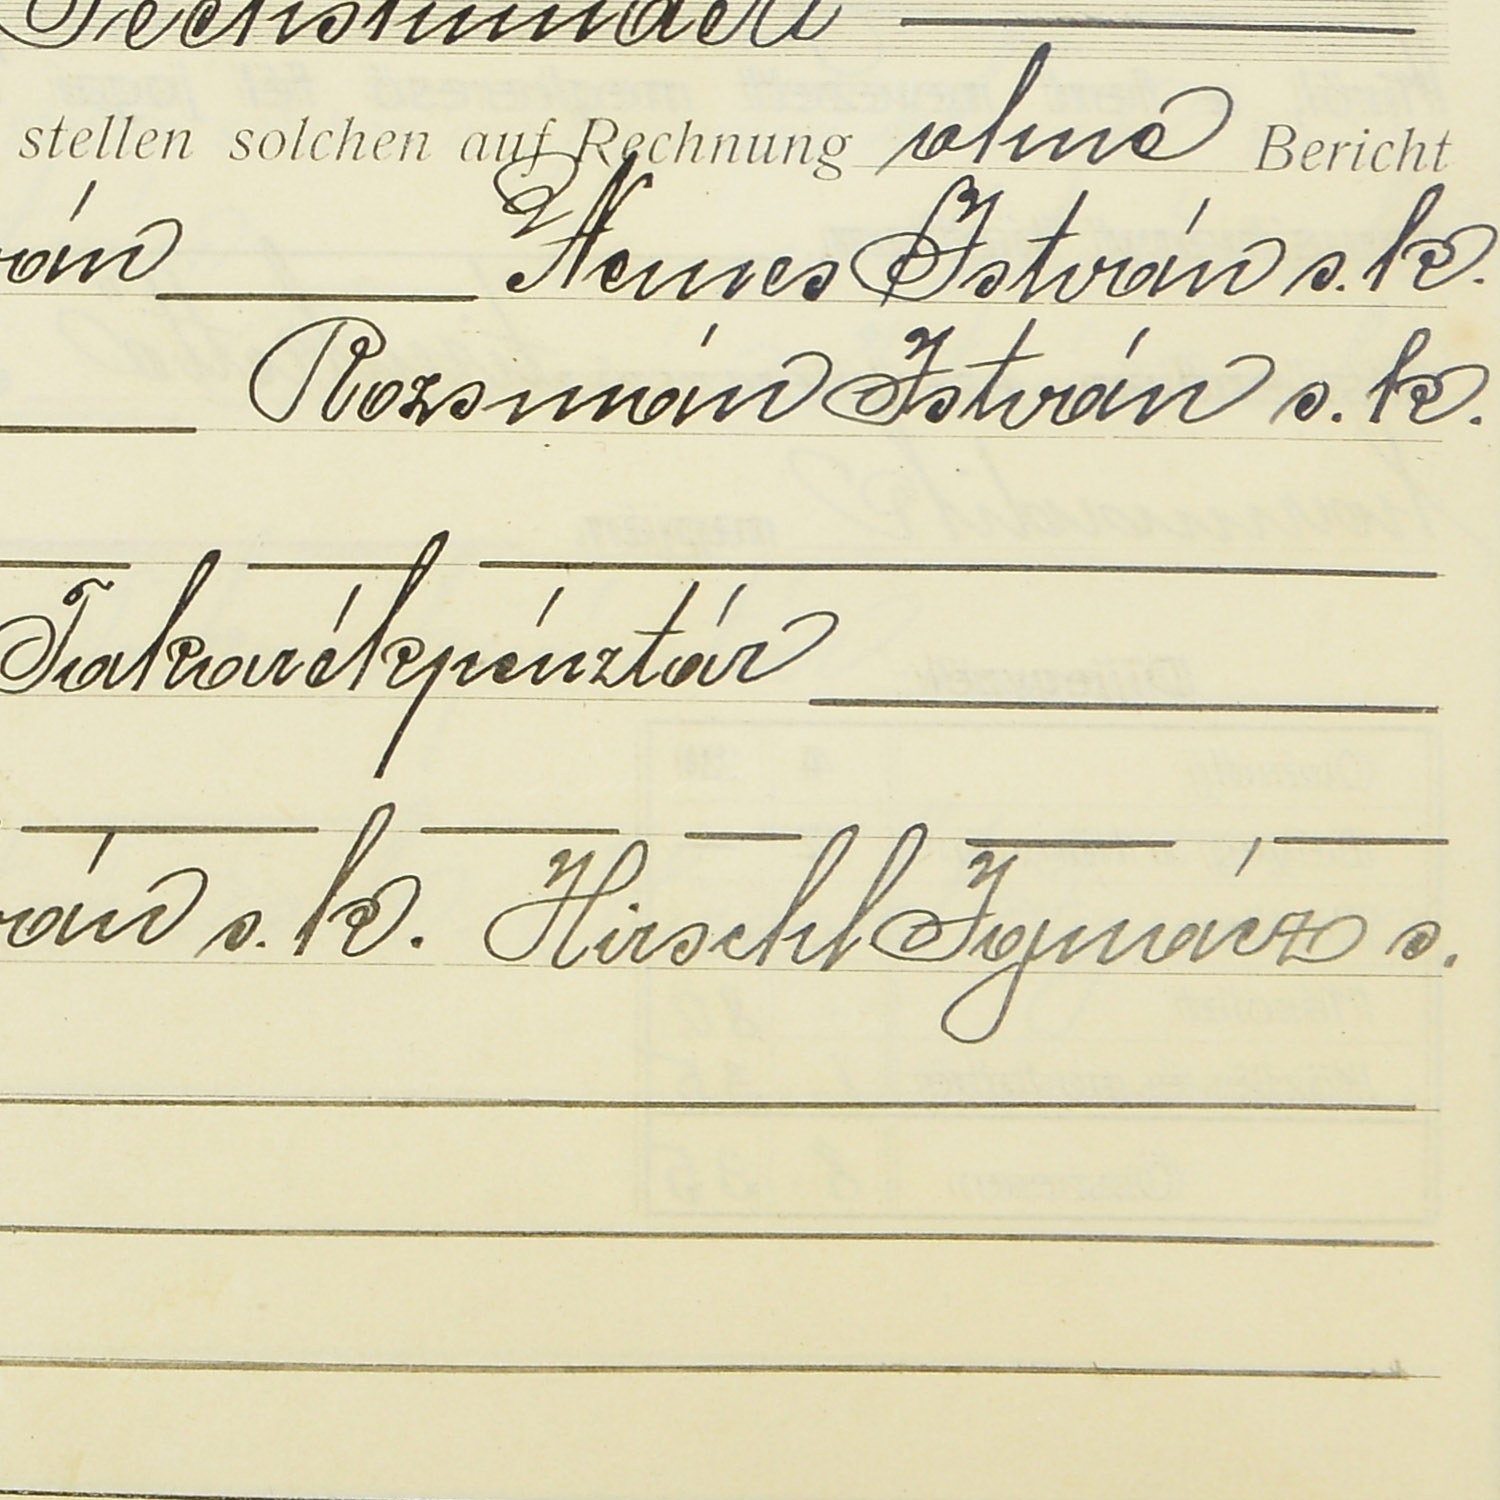 Sechshundert
stellen solchen auf Rechnung ohne Bericht
ván Nemes István s. k.
Rozsmán István s. k.
Takarékpénztár
ván s. k. Hirschl Ignácz s.